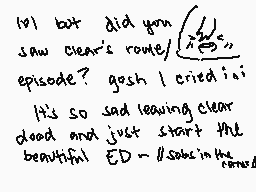 lol but did you
saw clear's route/
episode? gosh I cried i.i
It's so sad leaving clear
dead and just start the
beautiful ED - //sobs in the